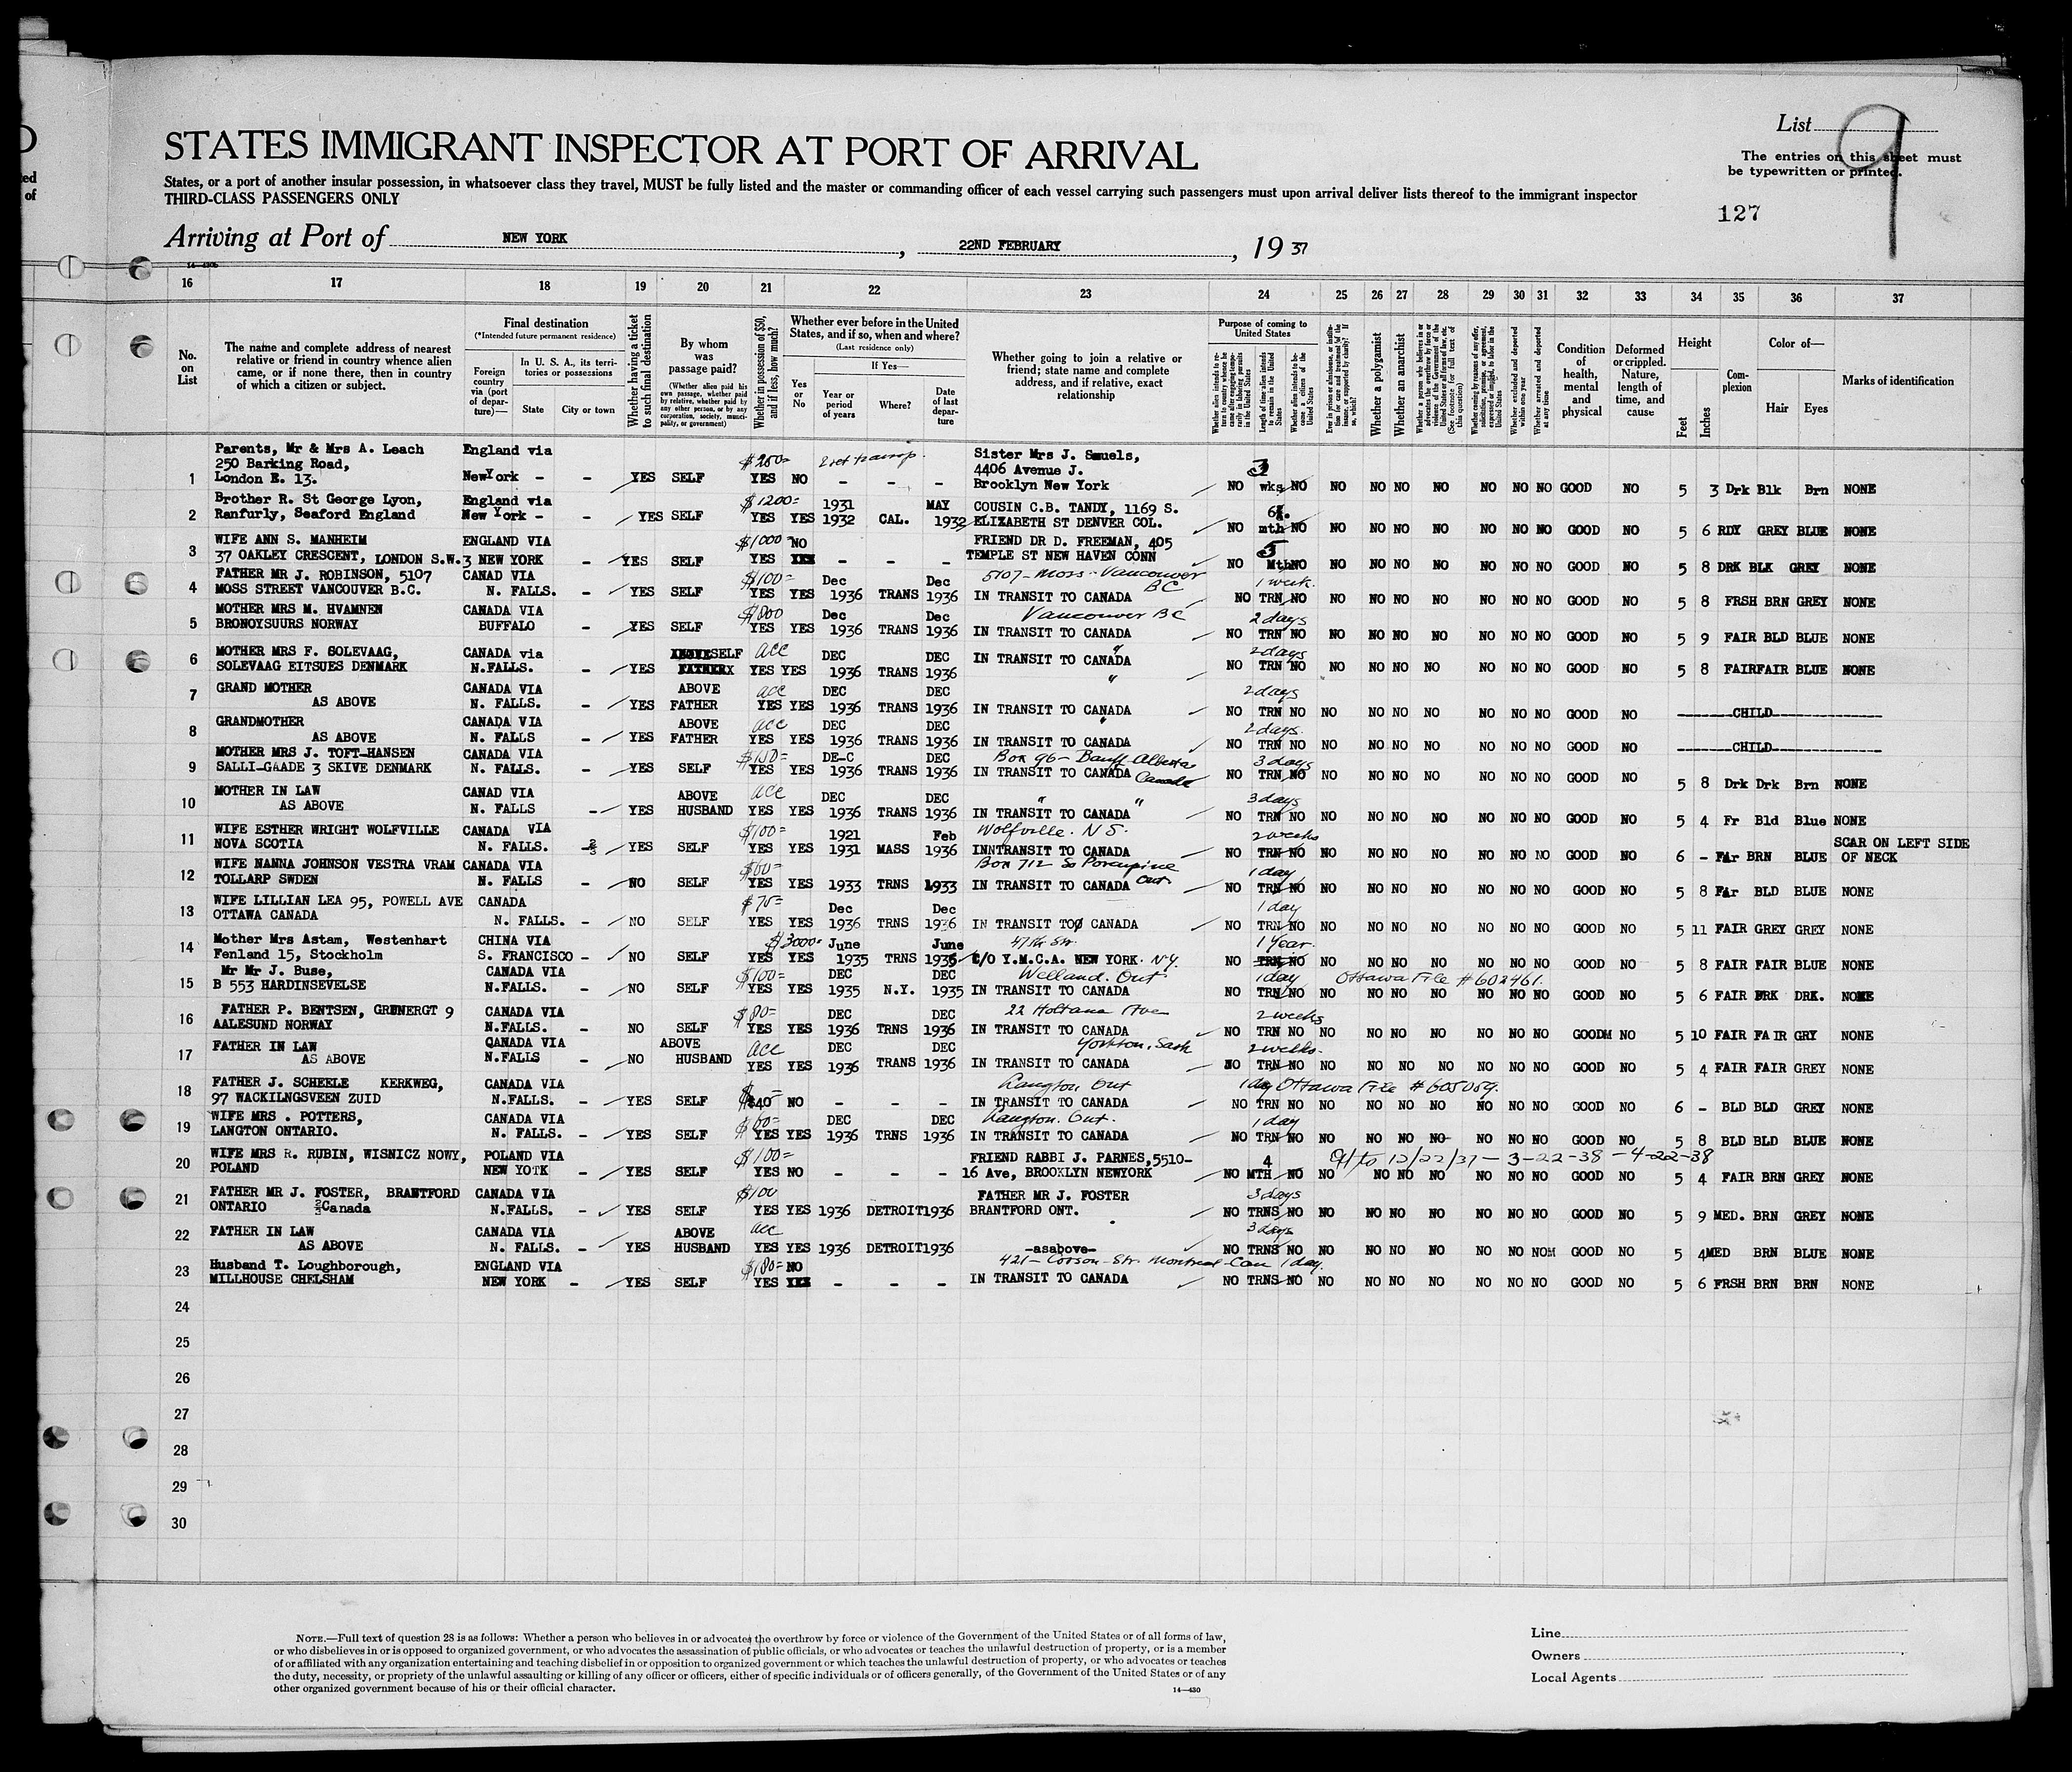 STATES IMMIGRANT INSPECTOR AT PORT OF ARRIVAL
List 9
The entries on this sheet must
be typewritten or printed.
States, or a port of another insular possession, in whatsoever class they travel, MUST be fully listed and the master or commanding officer of each vessel carrying such passengers must upon arrival deliver lists thereof to the immigrant inspector
THIRD-CLASS PASSENGERS ONLY
127
Arriving at Port of NEW YORK, 22ND FEBRUARY, 19 37
16 17 18 19 20 21 22 23 24 25 26 27 28 29 30 31 32 33 34 35 36 37
No. on List
The name and complete address of nearest relative or friend in country whence alien came, or if none there, then in country of which a citizen or subject.
Final destination
(*Intended future permanent residence)
Foreign country via (port of departure)—
In U. S. A., its territories or possessions
State
City or town
Whether having a ticket to such final destination
By whom was passage paid?
(Whether alien paid his own passage, whether paid by relative, whether paid by any other person, or by any corporation, society, municipality, or government)
Whether in possession of $50, and if less, how much?
Whether ever before in the United States, and if so, when and where?
(Last residence only)
If Yes—
Yes or No
Year or period of years
Where?
Date of last departure
Whether going to join a relative or friend; state name and complete address, and if relative, exact relationship
Purpose of coming to United States
Length of time alien intends to remain in the United States
Whether alien intends to become a citizen of the United States
Whether a polygamist
Whether an anarchist
Whether excluded and deported within one year
Whether arrested and deported at any time
Condition of health, mental and physical
Deformed or crippled. Nature, length of time, and cause
Height
Feet
Inches
Complexion
Color of—
Hair
Eyes
Marks of identification
Parents, Mr & Mrs A. Leach England via $250= Sister Mrs J. Smuels,
250 Barking Road, 4406 Avenue J. 3
1 London E. 13. NewYork - - YES SELF YES NO - - - Brooklyn New York NO wks NO NO NO NO NO NO NO NO GOOD NO 5 3 Drk Blk Brn NONE
Brother R. St George Lyon, England via $1200= 1931 MAY COUSIN C.B. TANDY, 1169 S.
2 Ranfurly, Seaford England New York - - YES SELF YES YES 1932 CAL. 1932 ELIZABETH ST DENVER COL. NO mth NO NO NO NO NO NO NO NO GOOD NO 5 6 RDY GREY BLUE NONE
WIFE ANN S. MANHEIM ENGLAND VIA $1000= NO FRIEND DR D. FREEMAN, 405 5
3 37 OAKLEY CRESCENT, LONDON S.W.3 NEW YORK - YES SELF YES XXX - - - TEMPLE ST NEW HAVEN CONN NO Mth NO NO NO NO NO NO NO NO GOOD NO 5 8 DRK BLK GREY NONE
FATHER MR J. ROBINSON, 5107 CANAD VIA $100= Dec Dec 5107 - Moss - Vancouver BC 1 week.
4 MOSS STREET VANCOUVER B.C. N. FALLS. - YES SELF YES YES 1936 TRANS 1936 IN TRANSIT TO CANADA NO TRN NO NO NO NO NO NO NO NO GOOD NO 5 8 FRSH BRN GREY NONE
MOTHER MRS M. HVAMNEN CANADA VIA $800 Dec Dec Vancouver BC 2 days
5 BRONOYSUURS NORWAY BUFFALO - YES SELF YES YES 1936 TRANS 1936 IN TRANSIT TO CANADA NO TRN NO NO NO NO NO NO NO NO GOOD NO 5 9 FAIR BLD BLUE NONE
MOTHER MRS F. SOLEVAAG, CANADA via SELF acc DEC DEC " 2 days
6 SOLEVAAG EITSUES DENMARK N.FALLS. - YES YES YES 1936 TRANS 1936 IN TRANSIT TO CANADA NO TRN NO NO NO NO NO NO NO NO GOOD NO 5 8 FAIR FAIR BLUE NONE
GRAND MOTHER CANADA VIA ABOVE acc DEC DEC " 2 days
7 AS ABOVE N. FALLS. - YES FATHER YES YES 1936 TRANS 1936 IN TRANSIT TO CANADA NO TRN NO NO NO NO NO NO NO NO GOOD NO ------CHILD------
GRANDMOTHER CANADA VIA ABOVE acc DEC DEC " 2 days.
8 AS ABOVE N. FALLS - YES FATHER YES YES 1936 TRANS 1936 IN TRANSIT TO CANADA NO TRN NO NO NO NO NO NO NO NO GOOD NO ------CHILD------
MOTHER MRS J. TOFT-HANSEN CANADA VIA $150= DE-C DEC Box 96 - Banff Alberta Canada 3 days
9 SALLI-GAADE 3 SKIVE DENMARK N. FALLS. - YES SELF YES YES 1936 TRANS 1936 IN TRANSIT TO CANADA NO TRN NO NO NO NO NO NO NO NO GOOD NO 5 8 Drk Drk Brn NONE
MOTHER IN LAW CANAD VIA ABOVE acc DEC DEC " " 3 days
10 AS ABOVE N. FALLS - YES HUSBAND YES YES 1936 TRANS 1936 IN TRANSIT TO CANADA NO TRN NO NO NO NO NO NO NO NO GOOD NO 5 4 Fr Bld Blue NONE
WIFE ESTHER WRIGHT WOLFVILLE CANADA VIA $100= 1921 Feb Wolfville. N S. 2 weeks SCAR ON LEFT SIDE
11 NOVA SCOTIA N. FALLS. YES SELF YES YES 1931 MASS 1936 INNTRANSIT TO CANADA NO TRN NO NO NO NO NO NO NO NO GOOD NO 6 - FAr BRN BLUE OF NECK
WIFE NANNA JOHNSON VESTRA VRAM CANADA VIA $60= Box 712 So Porcupine Ont. 1 day
12 TOLLARP SWDEN N. FALLS - NO SELF YES YES 1933 TRNS 1933 IN TRANSIT TO CANADA NO TRN NO NO NO NO NO NO NO NO GOOD NO 5 8 FAr BLD BLUE NONE
WIFE LILLIAN LEA 95, POWELL AVE CANADA $75= Dec Dec 1 day
13 OTTAWA CANADA N. FALLS. - NO SELF YES YES 1936 TRNS 1936 IN TRANSIT TOO CANADA NO TRN NO NO NO NO NO NO NO NO GOOD NO 5 11 FAIR GREY GREY NONE
Mother Mrs Astam, Westenhart CHINA VIA $3000= June June 47th St. 1 Year.
14 Fenland 15, Stockholm S. FRANCISCO - NO SELF YES YES 1935 TRNS 1935 C/O Y.M.C.A. NEW YORK. N.Y. NO TRN NO NO NO NO NO NO NO NO GOOD NO 5 8 FAIR FAIR BLUE NONE
Mr Mr J. Buse, CANADA VIA $100= DEC DEC Welland. Ont 1 day Ottawa File #602461.
15 B 553 HARDINSEVELSE N.FALLS. - NO SELF YES YES 1935 N.Y. 1935 IN TRANSIT TO CANADA NO TRN NO NO NO NO NO NO NO NO GOOD NO 5 6 FAIR DRK DRK. NONE
FATHER P. BENTSEN, GRENERGT 9 CANADA VIA $80= DEC DEC 22 Ave 2 weeks
16 AALESUND NORWAY N.FALLS. - NO SELF YES YES 1936 TRNS 1936 IN TRANSIT TO CANADA NO TRN NO NO NO NO NO NO NO NO GOOD NO 5 10 FAIR FAIR GRY NONE
FATHER IN LAW CANADA VIA ABOVE acc DEC DEC Yorkton, Sask 2 weeks.
17 AS ABOVE N.FALLS - NO HUSBAND YES YES 1936 TRANS 1936 IN TRANSIT TO CANADA NO TRN NO NO NO NO NO NO NO NO GOOD NO 5 4 FAIR FAIR GREY NONE
FATHER J. SCHEELE KERKWEG, CANADA VIA Langton Ont 1 day Ottawa File #605059.
18 97 WACKILNGSVEEN ZUID N.FALLS. - YES SELF $40 NO - - - IN TRANSIT TO CANADA NO TRN NO NO NO NO NO NO NO NO GOOD NO 6 - BLD BLD GREY NONE
WIFE MRS . POTTERS, CANADA VIA $60= DEC DEC Langton. Ont. 1 day
19 LANGTON ONTARIO. N. FALLS. - YES SELF YES YES 1936 TRNS 1936 IN TRANSIT TO CANADA NO TRN NO NO NO NO NO NO NO NO GOOD NO 5 8 BLD BLD BLUE NONE
WIFE MRS R. RUBIN, WISNICZ NOWY, POLAND VIA $100= FRIEND RABBI J. PARNES,5510- 4 to 12/22/37 - 3-22-38 - 4-22-38
20 POLAND NEW YOTK - YES SELF YES NO - - - 16 Ave, BROOKLYN NEWYORK NO MTH NO NO NO NO NO NO NO NO GOOD NO 5 4 FAIR BRN GREY NONE
FATHER MR J. FOSTER, BRANTFORD CANADA VIA $100 FATHER MR J. FOSTER 3 days
21 ONTARIO Canada N.FALLS. - YES SELF YES YES 1936 DETROIT 1936 BRANTFORD ONT. NO TRNS NO NO NO NO NO NO NO NO GOOD NO 5 9 MED. BRN GREY NONE
FATHER IN LAW CANADA VIA ABOVE acc 3 days
22 AS ABOVE N. FALLS. - YES HUSBAND YES YES 1936 DETROIT 1936 -asabove- NO TRNS NO NO NO NO NO NO NO NO GOOD NO 5 4 MED BRN BLUE NONE
Husband T. Loughborough, ENGLAND VIA $180= NO 421 - St. Montreal - Can 1 day.
23 MILLHOUSE CHELSHAM NEW YORK - YES SELF YES XXX - - - IN TRANSIT TO CANADA NO TRNS NO NO NO NO NO NO NO NO GOOD NO 5 6 FRSH BRN BRN NONE
24
25
26
27
28
29
30
NOTE.—Full text of question 28 is as follows: Whether a person who believes in or advocates the overthrow by force or violence of the Government of the United States or of all forms of law,
or who disbelieves in or is opposed to organized government, or who advocates the assassination of public officials, or who advocates or teaches the unlawful destruction of property, or is a member
of or affiliated with any organization entertaining and teaching disbelief in or opposition to organized government or which teaches the unlawful destruction of property, or who advocates or teaches
the duty, necessity, or propriety of the unlawful assaulting or killing of any officer or officers, either of specific individuals or of officers generally, of the Government of the United States or of any
other organized government because of his or their official character.
14—430
Line
Owners
Local Agents